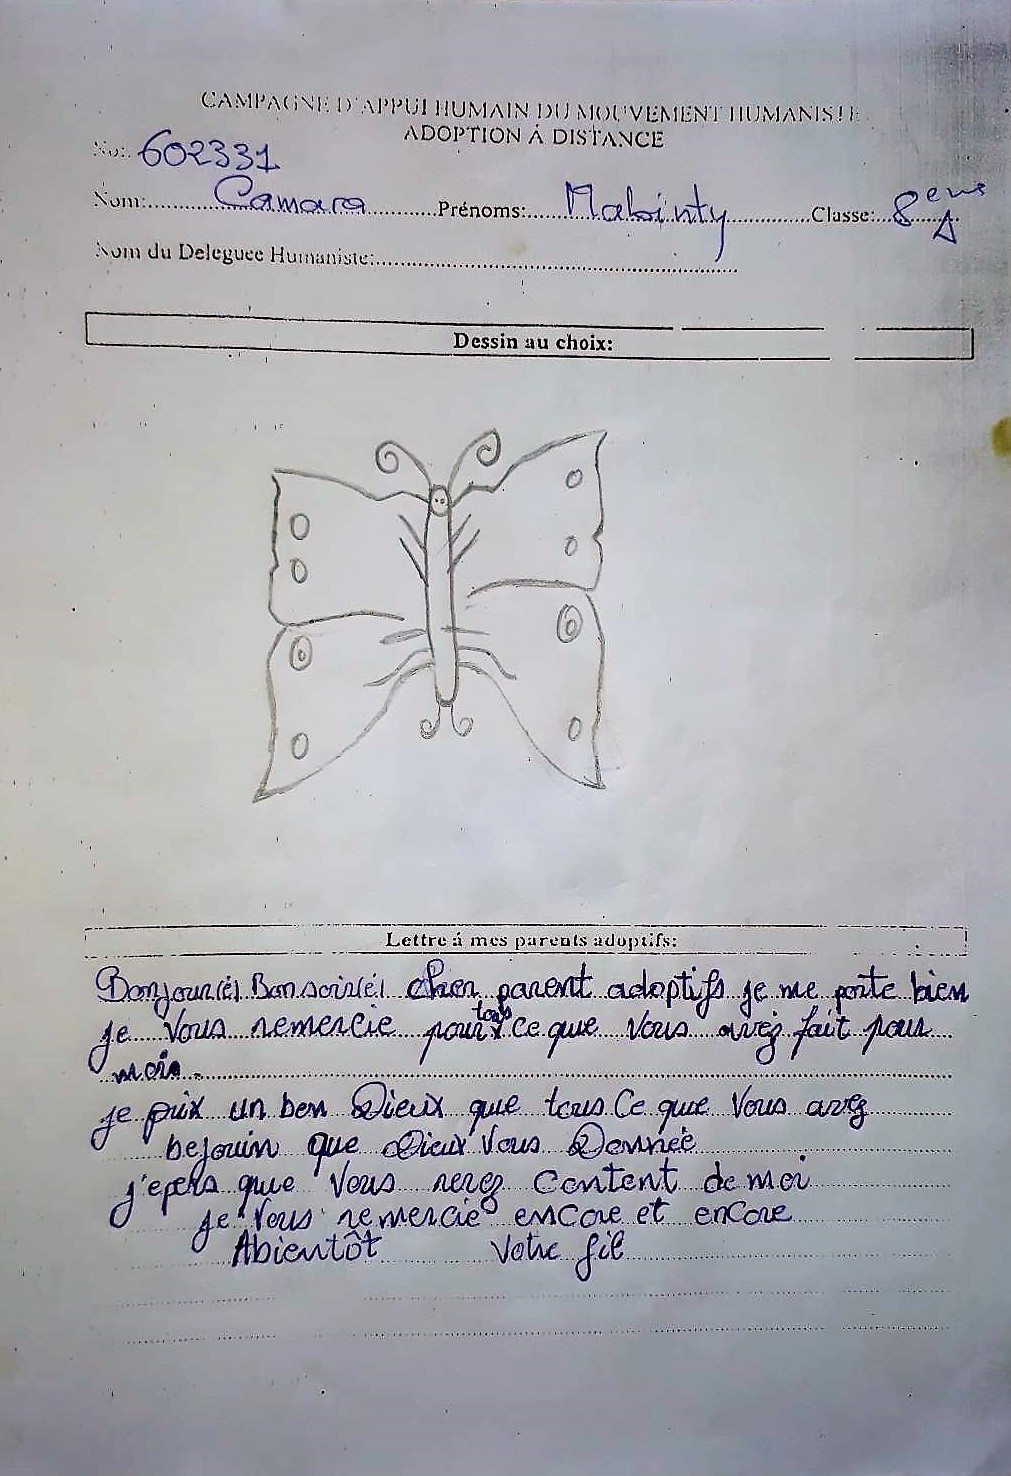 CAMPAGNE D'APPUI HUMAIN DU MOUVEMENT HUMANISTE
ADOPTION Á DISTANCE
No: 602331
Nom: Camara Prénoms: Mabinty Classe: 8eme A
Nom du Deleguee Humaniste:
Dessin au choix:
Lettre á mes parents adoptifs:
Bonjour(e) Bonsoir(e) cher parent adoptifs je me porte bien
je Vous remercie pour tous ce que Vous avez fait pour
moi.
je prix un bon Dieux que tous Ce que Vous avez
besouin que Dieux Vous Donnée
j'epers que Vous serez Content de moi
je Vous remercie encore et encore
Abientôt Votre fil